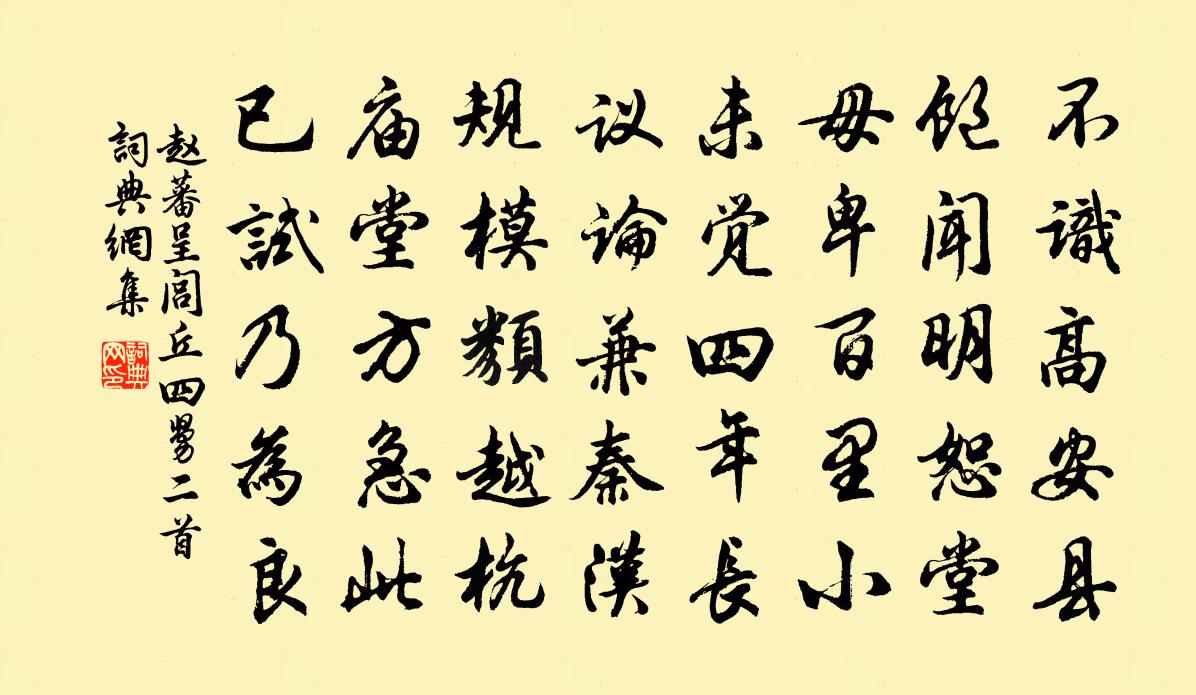 不識高安县
饱闻明恕堂
毋卑百里小
未觉四年長
议論兼秦漢
規模類越杭
庙堂方急此
已試乃為良
赵蕃呈闾丘四舅二首
詞典網集